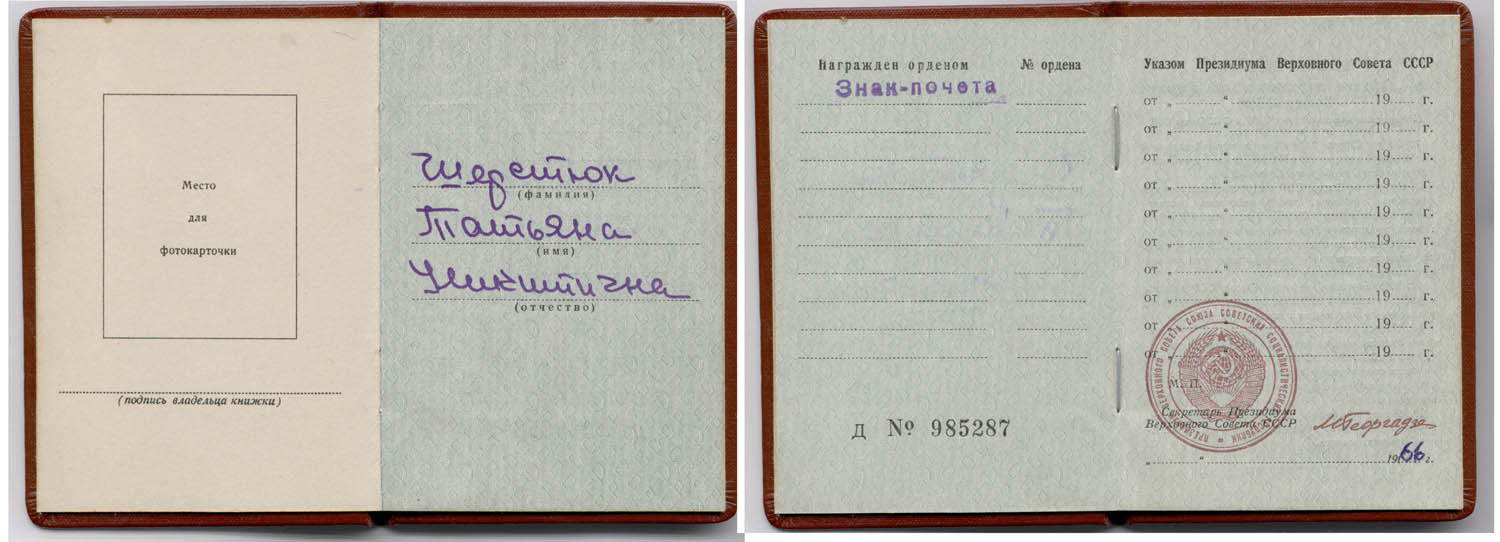 Место
для
фотокарточки
(подпись владельца книжки)
Шерстюк
(фамилия)
Татьяна
(имя)
Никитична
(отчество)
Награжден орденом № ордена
Знак-почета
Д № 985287
Указом Президиума Верховного Совета СССР
от „ “ 19 г.
от „ “ 19 г.
от „ “ 19 г.
от „ “ 19 г.
от „ “ 19 г.
от „ “ 19 г.
от „ “ 19 г.
от „ “ 19 г.
от „ “ 19 г.
от „ “ 19 г.
М. П.
Секретарь Президиума
Верховного Совета СССР МГеоргадзе
„ “ 1966 г.